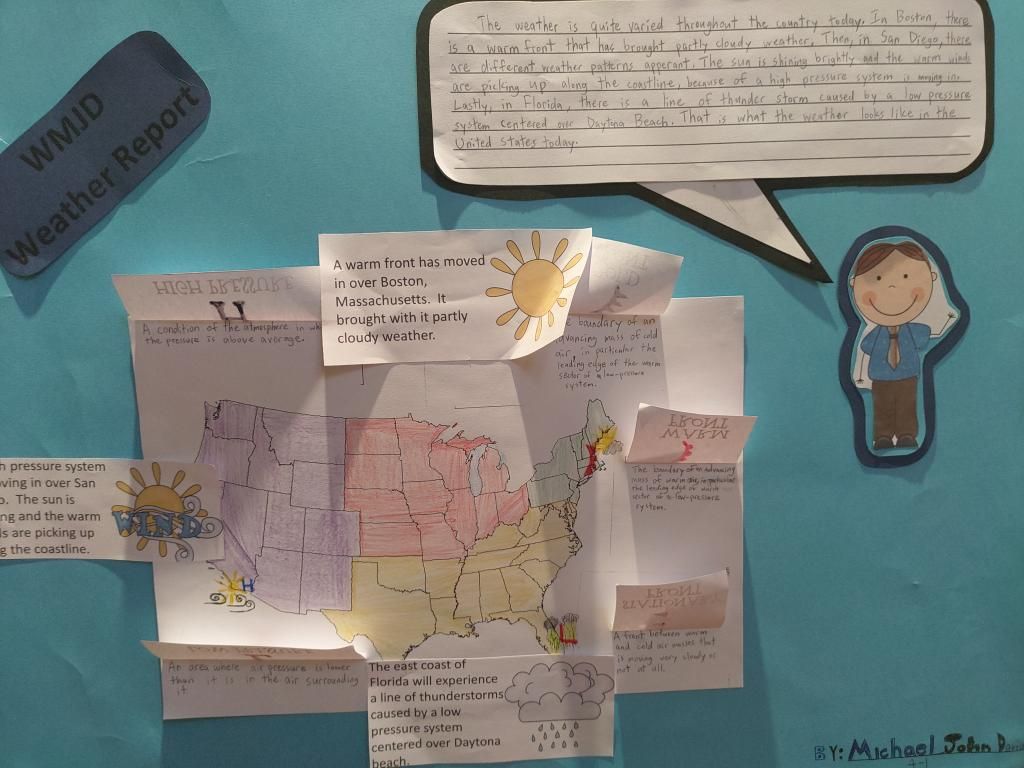 WMJD
Weather Report
The weather is quite varied throughout the country today. In Boston, there
is a warm front that has brought partly cloudy weather. Then, in San Diego, there
are different weather patterns apperant. The sun is shining brightly and the warm winds
are picking up along the coastline, because of a high pressure system is moving in.
Lastly, in Florida, there is a line of thunder storm caused by a low pressure
system centered over Daytona Beach. That is what the weather looks like in the
United States today.
A warm front has moved
in over Boston,
Massachusetts. It
brought with it partly
cloudy weather.
HIGH PRESSURE
H
A condition of the atmosphere in
the pressure is above average.
boundary of an
advancing mass of cold
air, in particular the
leading edge of the warm
sector of a low-pressure
system.
WARM
FRONT
The boundary of an advancing
mass of warm air, in particular
the leading edge of warm
sector of a low-pressure
system.
pressure system
in over San
The sun is
and the warm
are picking up
the coastline.
WIND
H
STATIONARY
FRONT
A front between warm
and cold air masses that
is moving very slowly or
not at all.
L
An area where air pressure is lower
than it is in the air surrounding
it.
The east coast of
Florida will experience
a line of thunderstorms
caused by a low
pressure system
centered over Daytona
beach.
BY: Michael John
4-1